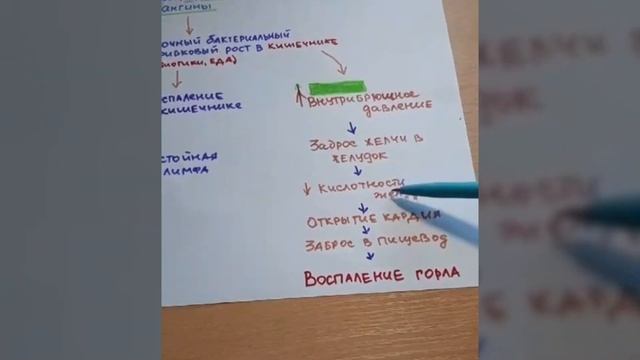 ангины
очный бактериальный
рибковый рост в кишечнике
биотики, еда)
спаление
кишечнике
стойная
лимфа
↑ Внутрибрюшное
давление
Заброс желчи в
желудок
↓ Кислотности
Открытие кардии
Заброс в пищевод
Воспаление горла